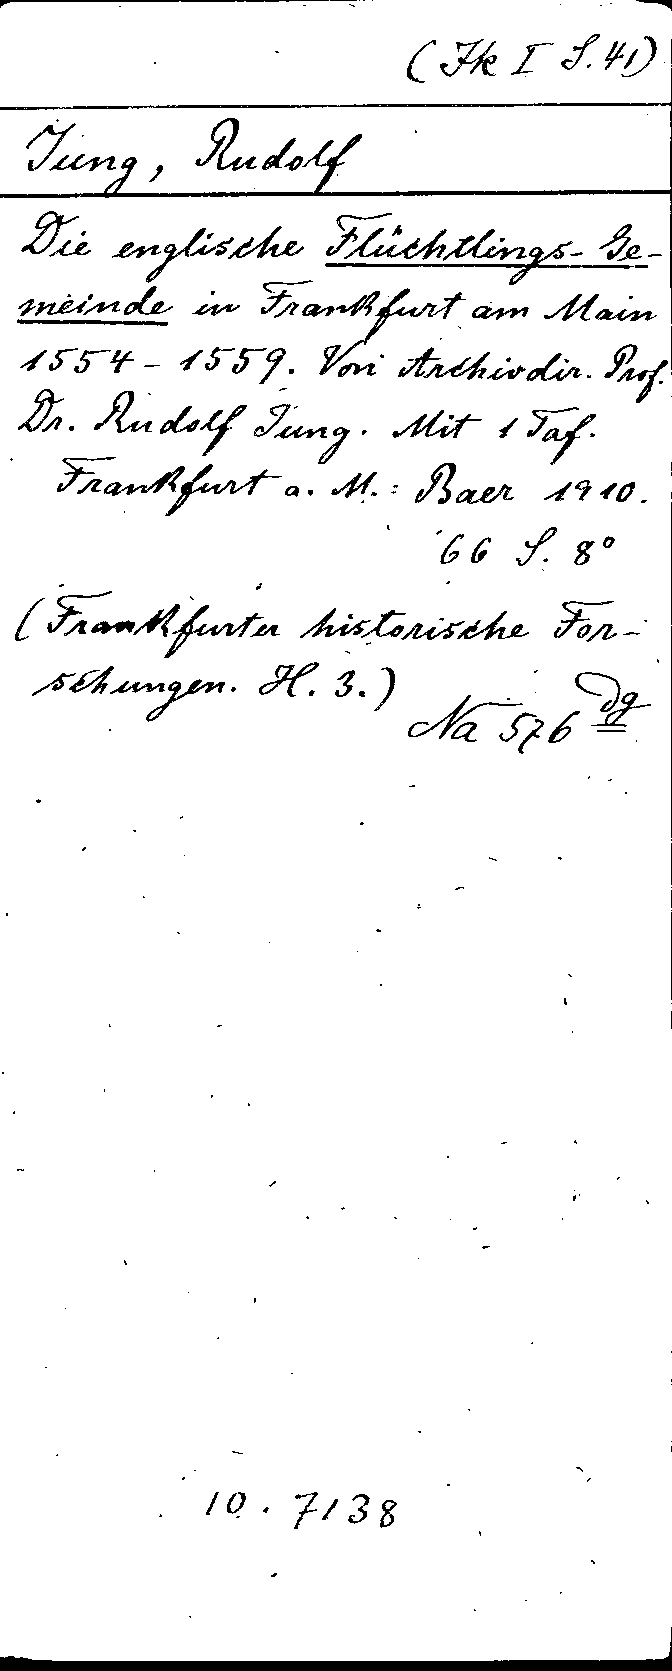 (Fk I S. 41)
Jung, Rudolf
Die englische Flüchtlings-Ge-
meinde in Frankfurt am Main
1554-1559. Von Archivdir. Prof.
Dr. Rudolf Jung. Mit 1 Taf.
Frankfurt a. M.: Baer 1910.
66 S. 8°
(Frankfurter historische For-
schungen. H. 3.)
Na 576 Dg
10. 7138